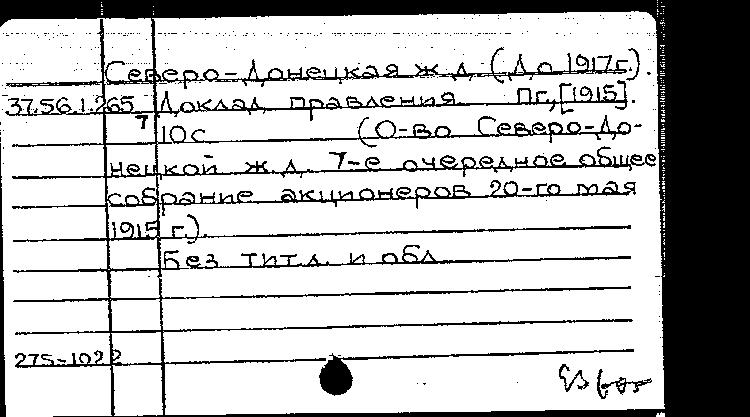 Северо-Донецкая ж.д. (До 1917г.).
37.56.1.265 Доклад правления Пг., [1915].
7 10с. (О-во Северо-До-
нецкой ж.д. 7-е очередное общее
собрание акционеров 20-го мая
1915 г.).
Без тит.л. и обл.
275-1022